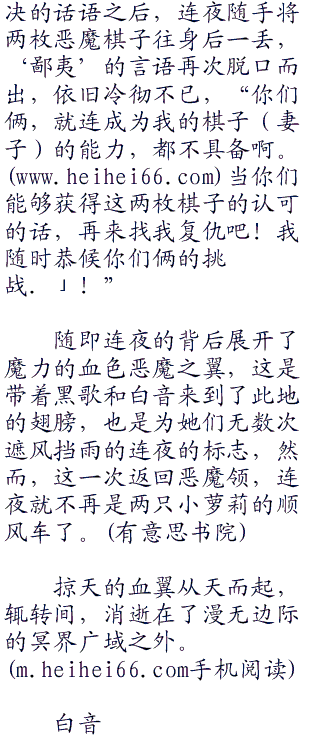 决的话语之后，连夜随手将
两枚恶魔棋子往身后一丢，
‘鄙夷’的言语再次脱口而
出，依旧冷彻不已，“你们
俩，就连成为我的棋子（妻
子）的能力，都不具备啊。
(www.heihei66.com)当你们
能够获得这两枚棋子的认可
的话，再来找我复仇吧！我
随时恭候你们俩的挑
战．」！”
随即连夜的背后展开了
魔力的血色恶魔之翼，这是
带着黑歌和白音来到了此地
的翅膀，也是为她们无数次
遮风挡雨的连夜的标志，然
而，这一次返回恶魔领，连
夜就不再是两只小萝莉的顺
风车了。(有意思书院)
掠天的血翼从天而起，
辄转间，消逝在了漫无边际
的冥界广域之外。
(m.heihei66.com手机阅读)
白音